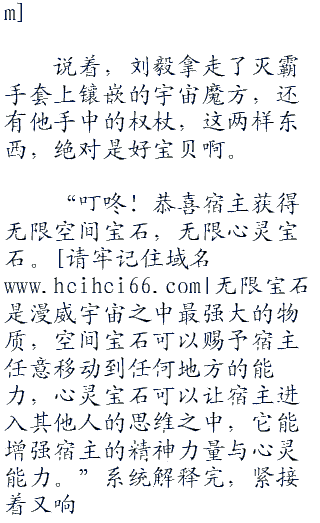 m]
说着，刘毅拿走了灭霸
手套上镶嵌的宇宙魔方，还
有他手中的权杖，这两样东
西，绝对是好宝贝啊。
“叮咚！恭喜宿主获得
无限空间宝石，无限心灵宝
石。[请牢记住域名
www.hcihci66.com|无限宝石
是漫威宇宙之中最强大的物
质，空间宝石可以赐予宿主
任意移动到任何地方的能
力，心灵宝石可以让宿主进
入其他人的思维之中，它能
增强宿主的精神力量与心灵
能力。”系统解释完，紧接
着又响